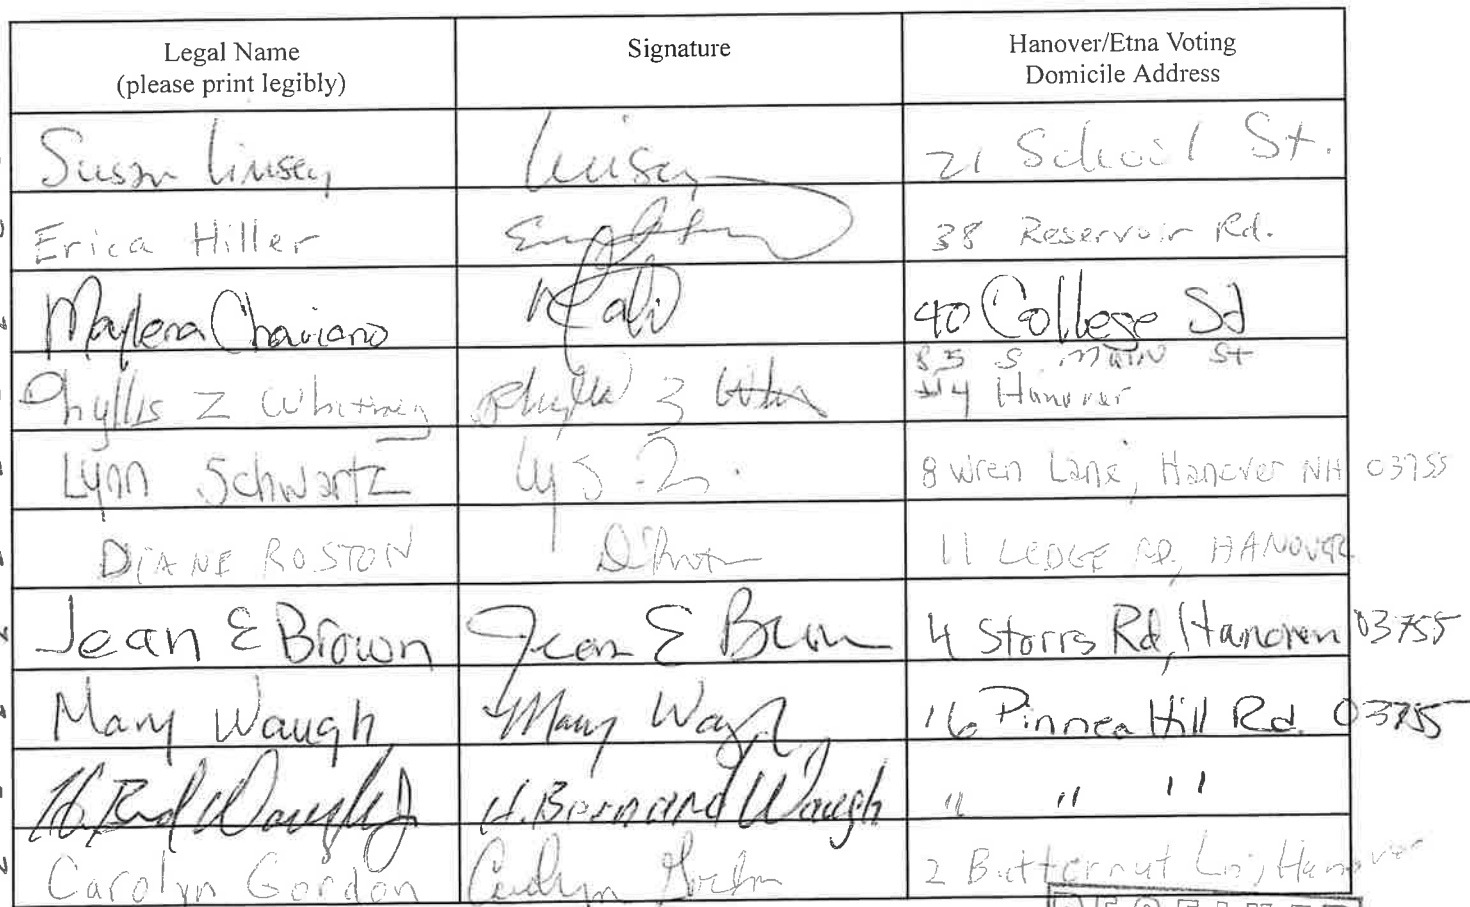 Legal Name
(please print legibly)
Signature
Hanover/Etna Voting
Domicile Address
Susan Linsey
Linsey
21 School St.
Erica Hiller
38 Reservoir Rd.
Maylena Chaviano
40 College St
Phyllis Z Whitney
Phyllis Z
85 S. Main St
#4 Hanover
Lynn Schwartz
8 Wren Lane, Hanover NH 03755
DIANE ROSTON
11 LEDGE RD, HANOVER
Jean E Brown
Jean E Brown
4 Storrs Rd, Hanover 03755
Mary Waugh
Mary Waugh
16 Pinnea Hill Rd. 03755
H. Bernard Waugh
" " "
Carolyn Gordon
Carolyn Gordon
2 Butternut Ln, Hanover